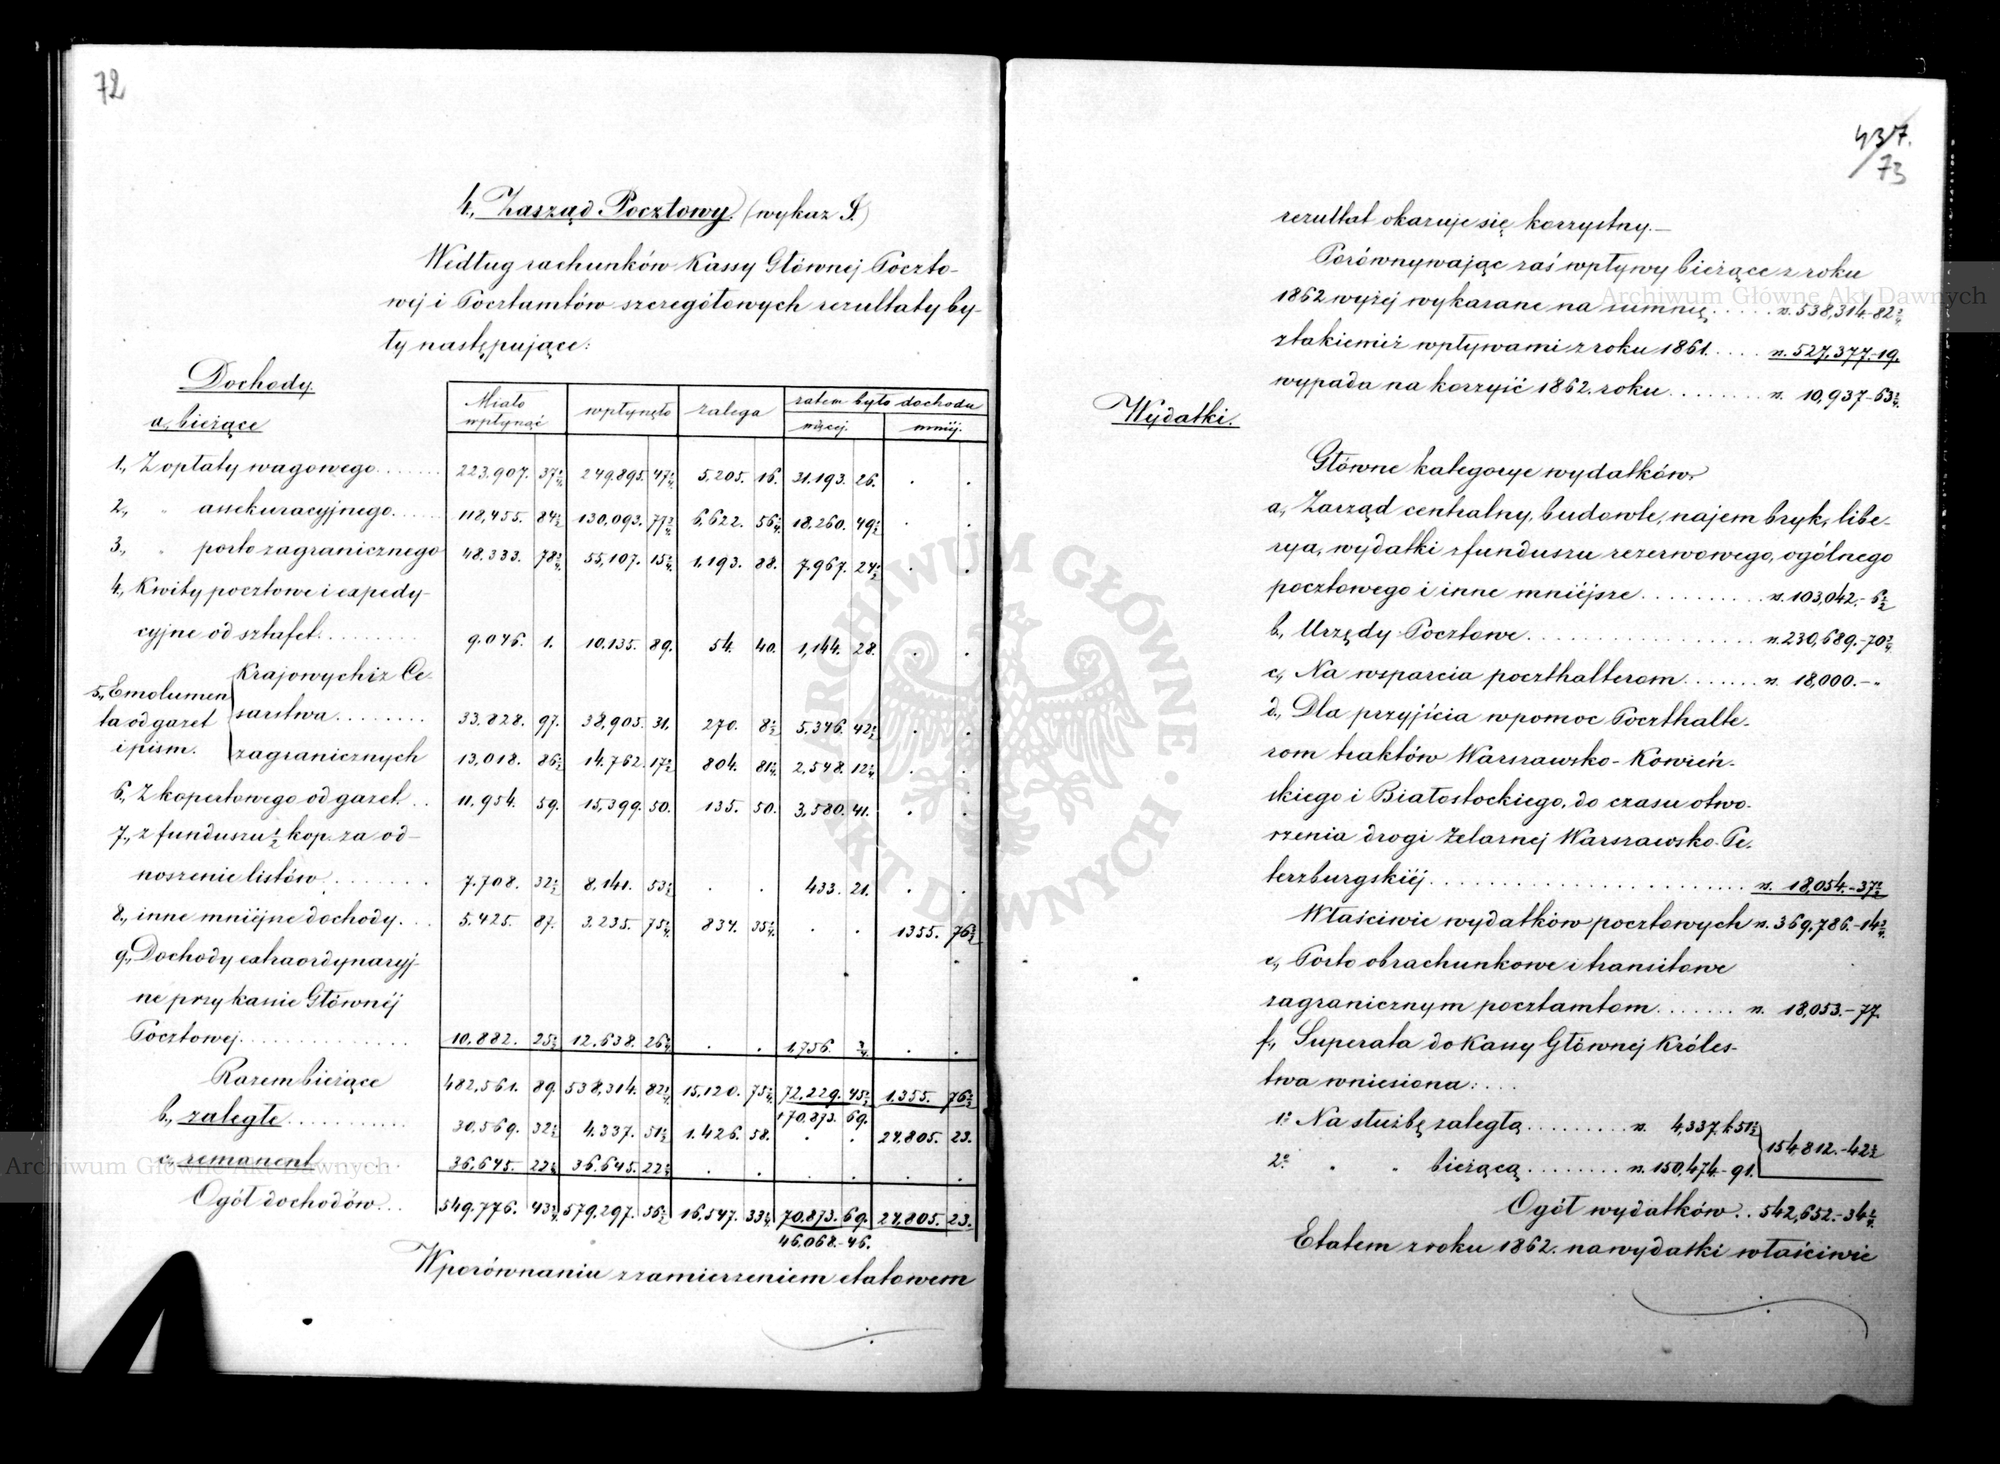 72
4., Zarząd Pocztowy. (wykaz S.)
Według rachunków Kassy Głównej Poczto-
wej i Pocztamtów szczegółowych rezultaty by-
ły następujące:
Dochody.
a., bieżące
Miało wpłynąć | wpłynęło | zalega | zatem było dochodu
więcej. | mniej.
1., Z opłaty wagowego....... 223.907. 37 | 249.895. 47 | 5.205. 16. | 31.193. 26. | . .
2., " assekuracyjnego...... 118,455. 84 | 130,093. 77 | 6,622. 56 | 18.260. 49 | . .
3., " porto zagranicznego 48.333. 78 | 55,107. 15 | 1.193. 88. | 7.967. 24 | . .
4., Kwity pocztowe i expedy-
cyjne od sztafet......... 9.046. 1. | 10.135. 89. | 54. 40. | 1,144. 28. | . .
5., Emolumen
ta od gazet
i pism.
Krajowych i z Ce-
sarstwa........ 33.828. 97. | 38,905. 31. | 270. 8½ | 5.346. 42½ | . .
zagranicznych 13,018. 86 | 14.762. 17 | 804. 81 | 2,548. 12 | . .
6., Z kopertowego od gazet... 11,954. 59. | 15,399. 50. | 135. 50. | 3,580. 41. | . .
7., z funduszu ½ kop. za od-
noszenie listów......... 7.708. 32½ | 8.141. 53½ | . . | 433. 21. | . .
8., inne mniejne dochody... 5.425. 87. | 3.235. 75 | 834. 35 | . . | 1355. 76
9., Dochody extraordynaryj-
ne przy kassie Głównéj
Pocztowej............... 10,882. 25 | 12.638. 26 | . . | 1.756. ¾ | . .
Razem bieżące 482,561. 89. | 538,314. 82 | 15,120. 75 | 72,229. 45 | 1.355. 76
170,873. 69.
b., zaległe............ 30,569. 32 | 4.337. 51½ | 1.426. 58. | . . | 24.805. 23.
c., remanent........ 36,645. 22 | 36.645. 22 | . . | . . | . .
Ogół dochodów... 549,776. 43 | 579.297. 56 | 16,547. 33 | 70.873. 69. | 24.805. 23.
46,068.-46.
W porównaniu z zamierzeniem etatowem
437.
73
rezultat okazuje się korzystny.—
Porównywając zaś wpływy bieżące z roku
1862 wyżej wykazane na summę..... rs. 538,314.-82¾
z takiemiż wpływami z roku 1861..... rs. 527.377.-19.
wypada na korzyść 1862. roku........ rs. 10,937-63¾
Wydatki.
Główne kategorye wydatków.
a., Zarząd centralny, budowle, najem bryk, libe-
rya, wydatki z funduszu rezerwowego, ogólnego
pocztowego i inne mniéjsze.......... rs. 103,042.-6½
b., Urzędy Pocztowe................. rs. 230,689.-70¾
c., Na wsparcia poczthalterom....... rs. 18,000.-"
d., Dla przyjścia w pomoc Poczthalte-
rom traktów Warszawsko-Kowień-
skiego i Białostockiego, do czasu otwo-
rzenia drogi żelaznej Warszawsko-Pe-
terzburgskiéj....................... rs. 18,054.-37½
Właściwie wydatków pocztowych rs. 369,786.-14¾
e., Porto obrachunkowe i transitowe
zagranicznym pocztamtom....... rs. 18,053.-77.
f., Superata do Kassy Głównej Króles-
twa wniesiona:....
1º Na służbę zaległą......... rs. 4,337.k.51½
154,812.-42½
2º " " bieżącą........ rs. 150,474.-91.
Ogół wydatków.. 542,652.-34¼
Etatem z roku 1862. na wydatki właściwie
Archiwum Główne Akt Dawnych
Archiwum Główne Akt Dawnych
ARCHIWUM GŁÓWNE AKT DAWNYCH